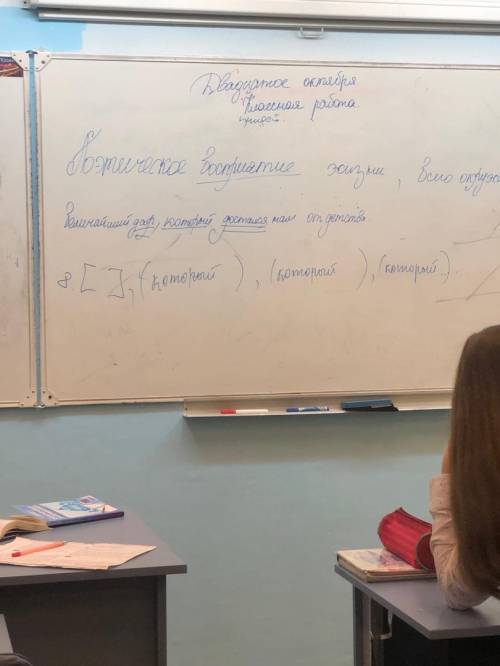 Двадцатое октября
Классная работа
Поэтическое восприятие жизни, всего окруж
Величайший дар, который достался нам от детства
8 [ ], (который ), (который ), (который..).